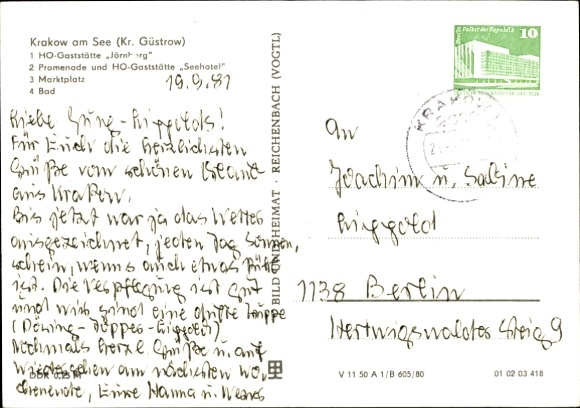 Krakow am See (Kr. Güstrow)
1 HO-Gaststätte „Jörnberg"
2 Promenade und HO-Gaststätte „Seehotel"
3 Marktplatz
4 Bad
19.9.81
Liebe Jung-Liggolds!
Für Euch die herzlichsten
Grüße vom schönen
aus Krakow.
Bis jetzt war ja das Wetter
ausgezeichnet, jeden Tag Sonnen,
schein, wenns auch etwas
ist. Die Verpflegung ist gut
und wir sind eine dufte Truppe
(Döring-Töppes-Liggold)
Nochmals herzl. Grüße u. auf
Wiedersehen am nächsten Wo,
chenende, Eure Hanna u.
DDR 0,25 M
BILD UND HEIMAT · REICHENBACH (VOGTL)
Berlin Palast der Republik
10
KRAKOW
An
Joachim u. Sabine
Liggold
1138 Berlin
Hertwigswalder Steig 9
V 11 50 A 1/B 605/80
01 02 03 418